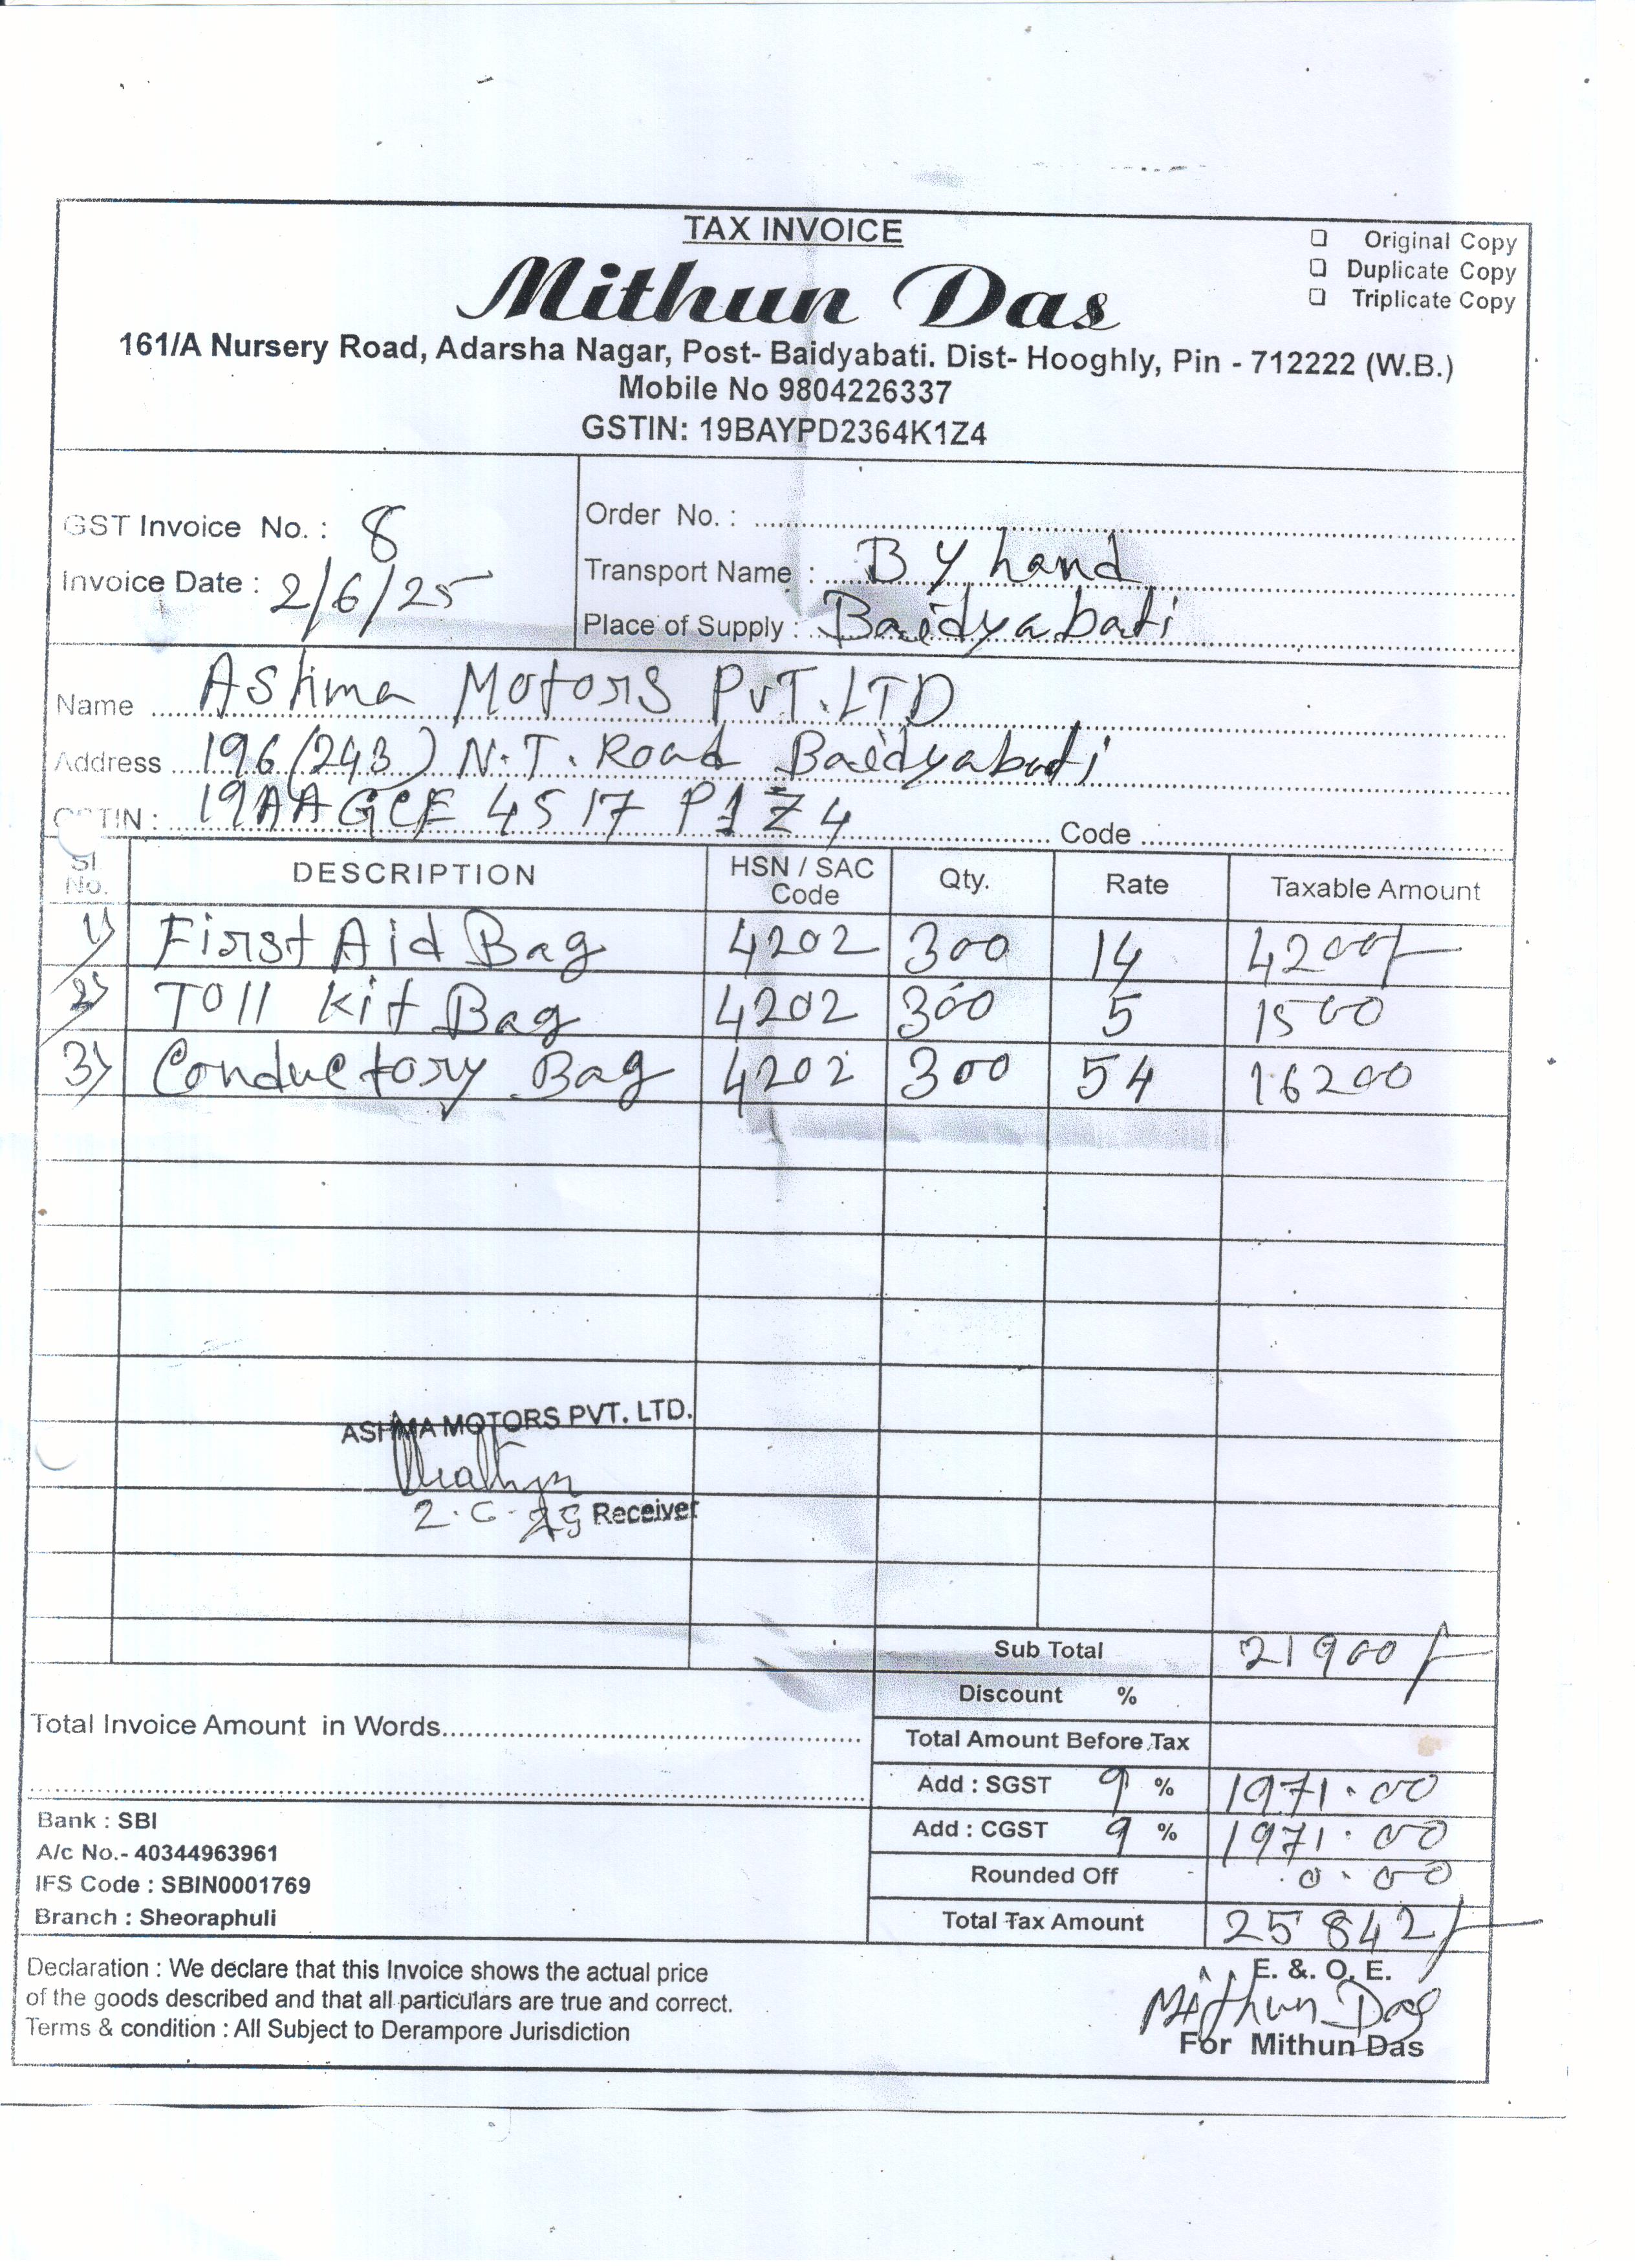 TAX INVOICE
Original Copy
Duplicate Copy
Triplicate Copy
Mithun Das
161/A Nursery Road, Adarsha Nagar, Post- Baidyabati. Dist- Hooghly, Pin - 712222 (W.B.)
Mobile No 9804226337
GSTIN: 19BAYPD2364K1Z4
GST Invoice No. : 8
Invoice Date : 2/6/25
Order No. :
Transport Name : By hand
Place of Supply : Baidyabati
Name Ashma Motors PVT. LTD
Address 196/(243) N.T. Road Baidyabati
GSTIN : 19AAGCF 4517 P1Z4 Code
Sl. No. DESCRIPTION HSN / SAC Code Qty. Rate Taxable Amount
1) First Aid Bag 4202 300 14 4200/-
2) Toll Kit Bag 4202 300 5 1500
3) Conductory Bag 4202 300 54 16200
ASHMA MOTORS PVT. LTD.
Receiver
Sub Total 21900/-
Discount %
Total Invoice Amount in Words
Total Amount Before Tax
Add : SGST 9 % 1971.00
Add : CGST 9 % 1971.00
Rounded Off 0.00
Total Tax Amount 25842/-
Bank : SBI
A/c No.- 40344963961
IFS Code : SBIN0001769
Branch : Sheoraphuli
Declaration : We declare that this Invoice shows the actual price
of the goods described and that all particulars are true and correct.
Terms & condition : All Subject to Derampore Jurisdiction
E. &. O. E.
Mithun Das
For Mithun Das